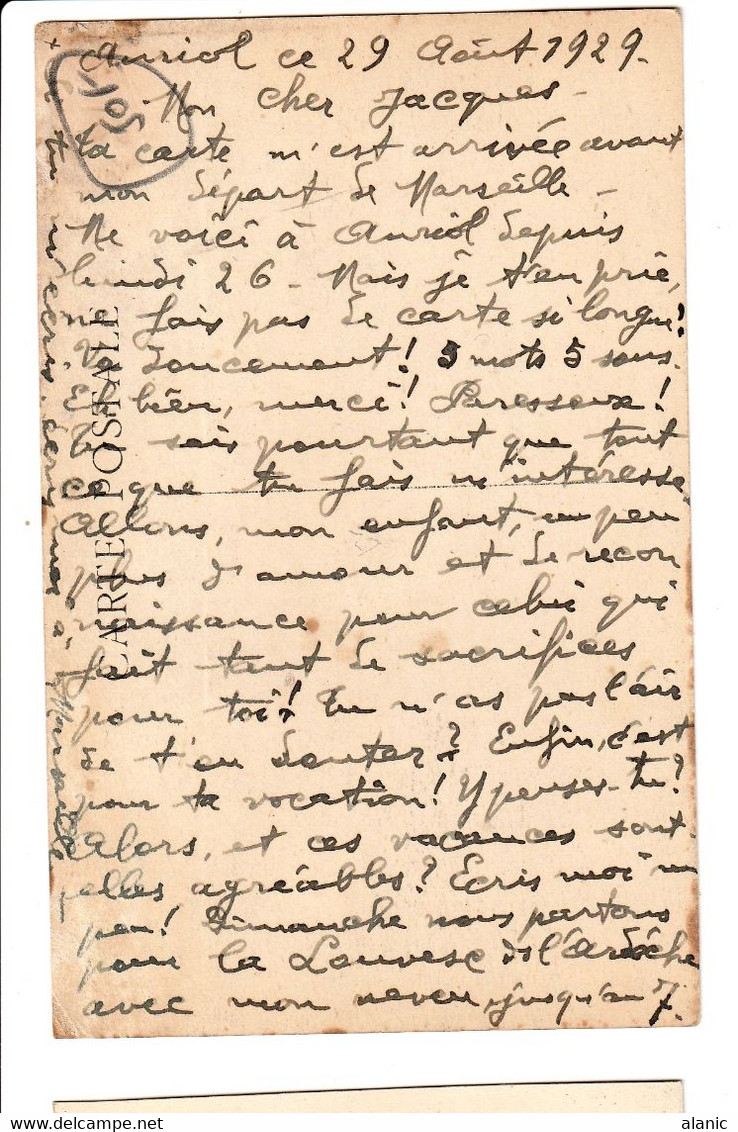 Auriol ce 29 Août 1929.
Mon cher Jacques -
ta carte m'est arrivée avant
mon départ de Marseille -
Me voici à Auriol depuis
lundi 26 - Mais je t'en prie,
ne fais pas de carte si longue!
Va doucement! 5 mots 5 sous.
Eh bien, merci! Paresseux!
Tu sais pourtant que tout
ce que tu fais m'intéresse.
Allons, mon enfant, un peu
plus d'amour et de recon
naissance pour celui qui
fait tant de sacrifices
pour toi! Tu n'as pas l'air
de t'en douter? Enfin, c'est
pour ta vocation! Y penses-tu?
Alors, et ces vacances sont-
elles agréables? Ecris moi un
peu! Dimanche nous partons
pour la Louvesc ds l'ardèche
avec mon neveu, jusqu'au 7.
+ si tu m'écris, écris moi à Marseille -
CARTE POSTALE
alanic